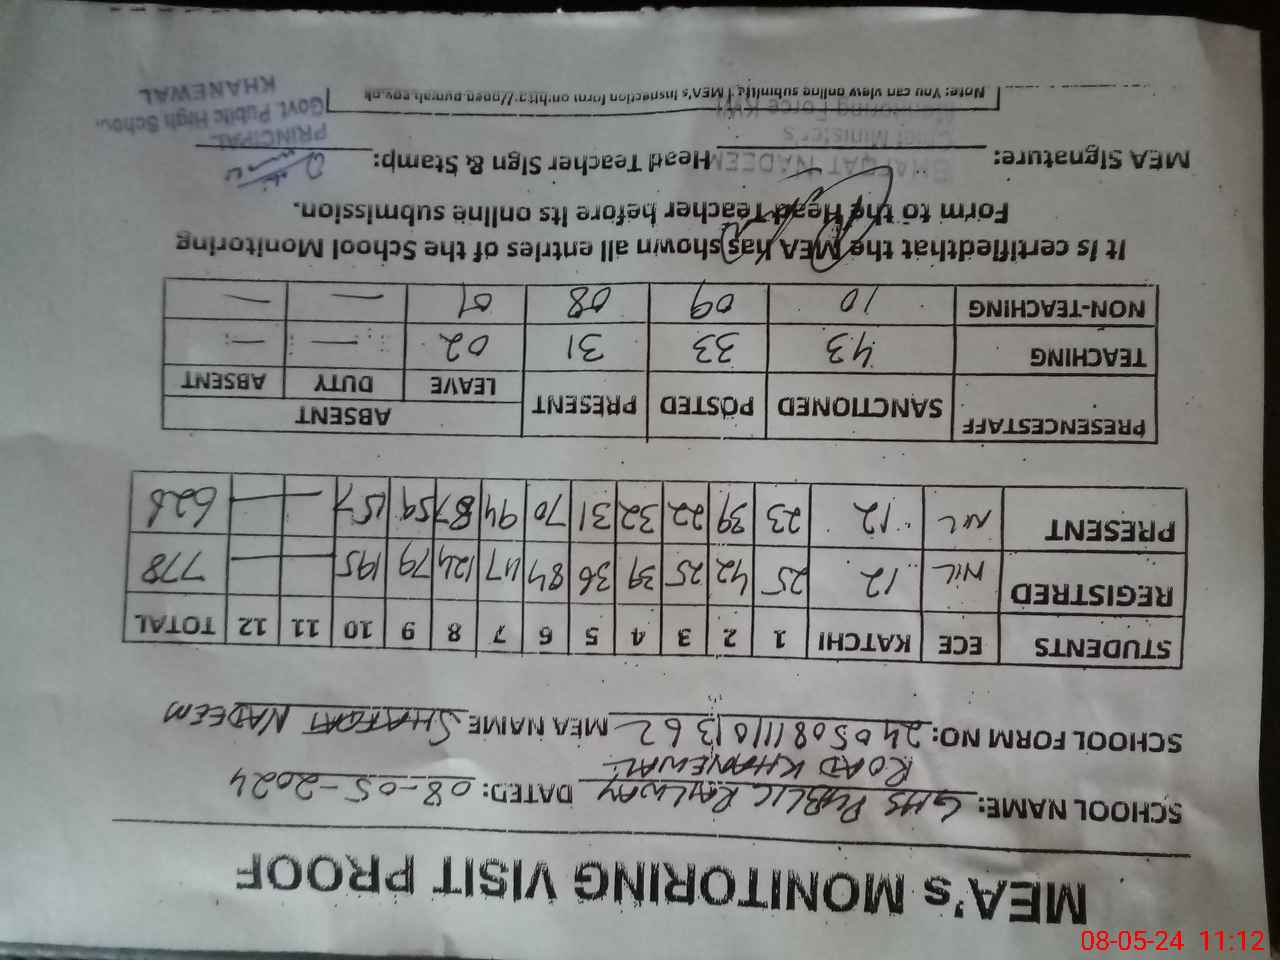 MEA's MONITORING VISIT PROOF
SCHOOL NAME: GHS PUBLIC RAILWAY DATED: 08-05-2024
ROAD KHANEWAL
SCHOOL FORM NO: 24050811101362 MEA NAME SHAFQAT NADEEM
STUDENTS ECE KATCHI 1 2 3 4 5 6 7 8 9 10 11 12 TOTAL
REGISTRED NIL 12 25 42 25 39 36 84 117 124 79 195 — — 778
PRESENT NIL 12 23 39 22 32 31 70 94 87 59 157 — — 626
PRESENCESTAFF SANCTIONED POSTED PRESENT ABSENT
LEAVE DUTY ABSENT
TEACHING 43 33 31 02 — —
NON-TEACHING 10 09 08 01 — —
It is certifiedthat the MEA has shown all entries of the School Monitoring
Form to the Head Teacher before its online submission.
MEA Signature: Head Teacher Sign & Stamp:
SHAFQAT NADEEM
Chief Minister's
Monitoring Force KWL
PRINCIPAL
Govt. Public High School
KHANEWAL
Note: You can view online submitted MEA's Inspection form on:http://open.punjab.gov.pk
08-05-24 11:12